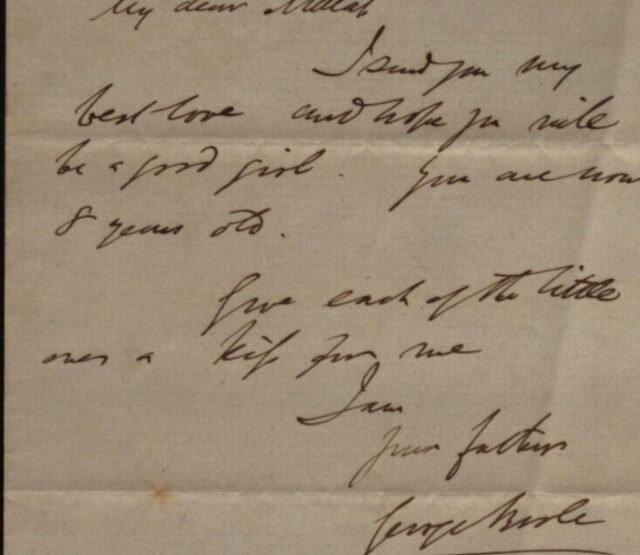 My dear Mab
I send you my
best love and hope you will
be a good girl. You are now
8 years old.
Give each of the little
ones a kiss from me
I am
your father
George Boole